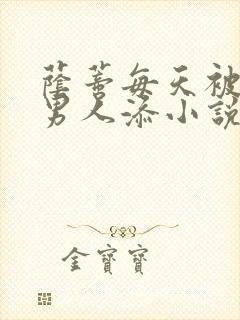 蔭蒂每天被
男人添小說
金寶寶